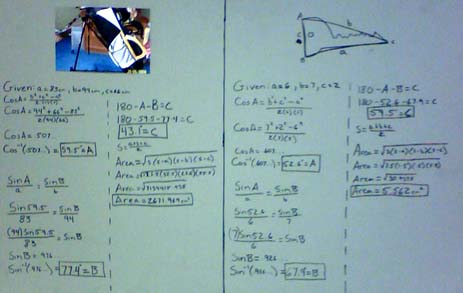 Given: a=83cm, b=94cm, c=66cm
CosA=
CosA= 94²+66²-83²
2(94)(66)
CosA=.507
Cos⁻¹(.507...)= 59.5°=A
SinA = SinB
a b
Sin59.5 = SinB
83 94
(94)Sin59.5 = SinB
83
SinB=.976...
Sin⁻¹(.976...)= 77.4°=B
180-A-B=C
180-59.5-77.4=C
43.1°=C
S=a+b+c
2
Area=√s(s-a)(s-b)(s-c)
Area=
Area=
Area=2611.969cm²
A
c
B
b
a
C
Given: a=6, b=7, c=2
CosA= b²+c²-a²
2(b)(c)
CosA= 7²+2²-6²
2(7)(2)
CosA=.607...
Cos⁻¹(.607...)= 52.6°=A
SinA = SinB
a b
Sin52.6 = SinB
6 7
(7)Sin52.6 = SinB
6
SinB=.926...
Sin⁻¹(.926...)= 67.9=B
180-A-B=C
180-52.6-67.9=C
59.5=C
S=a+b+c
2
Area=√s(s-a)(s-b)(s-c)
Area=
Area=
Area=5.562cm²